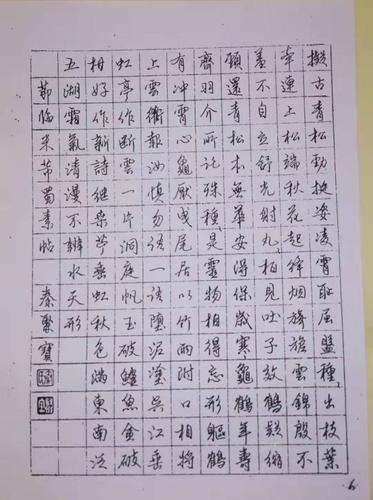 擬古青松勁挺姿凌霄恥屈盤種、出枝葉
牽連上松端秋花起絳烟旖旎雲錦殷不
羞不自立舒光射丸、柏見吐子效鶴疑縮
頸還青松本無華安得保歲寒龜鶴年壽
齊羽介所託殊種是靈物相得忘形軀鶴
有冲霄心龜厭曳尾居以竹兩附口相將
上雲衢報汝慎勿語一語墮泥塗吳江垂
虹亭作斷雲一片洞庭帆玉破鱸魚金破
柑好作新詩繼桑苧垂虹秋色滿東南泛
五湖霜氣清漫不辨水天形
節臨米芾蜀素帖 秦聚寶
6